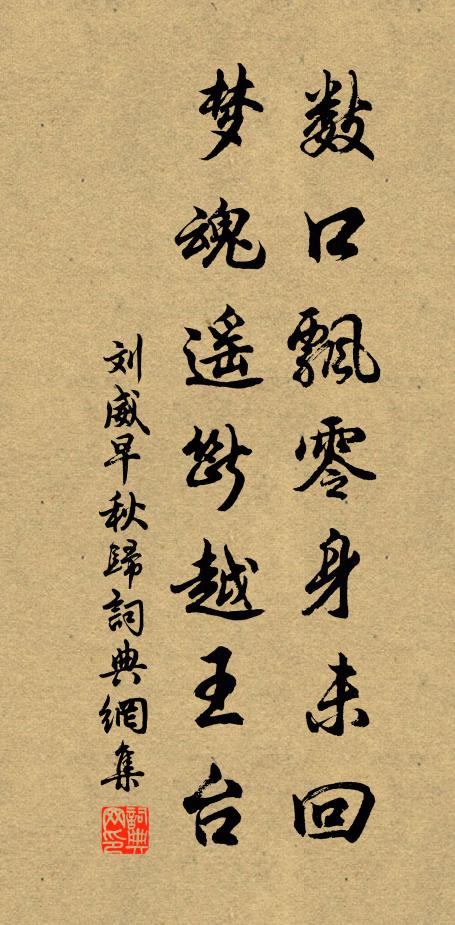 数口飘零身未回
梦魂遥断越王台
刘威早秋歸詞典網集
詞典网印